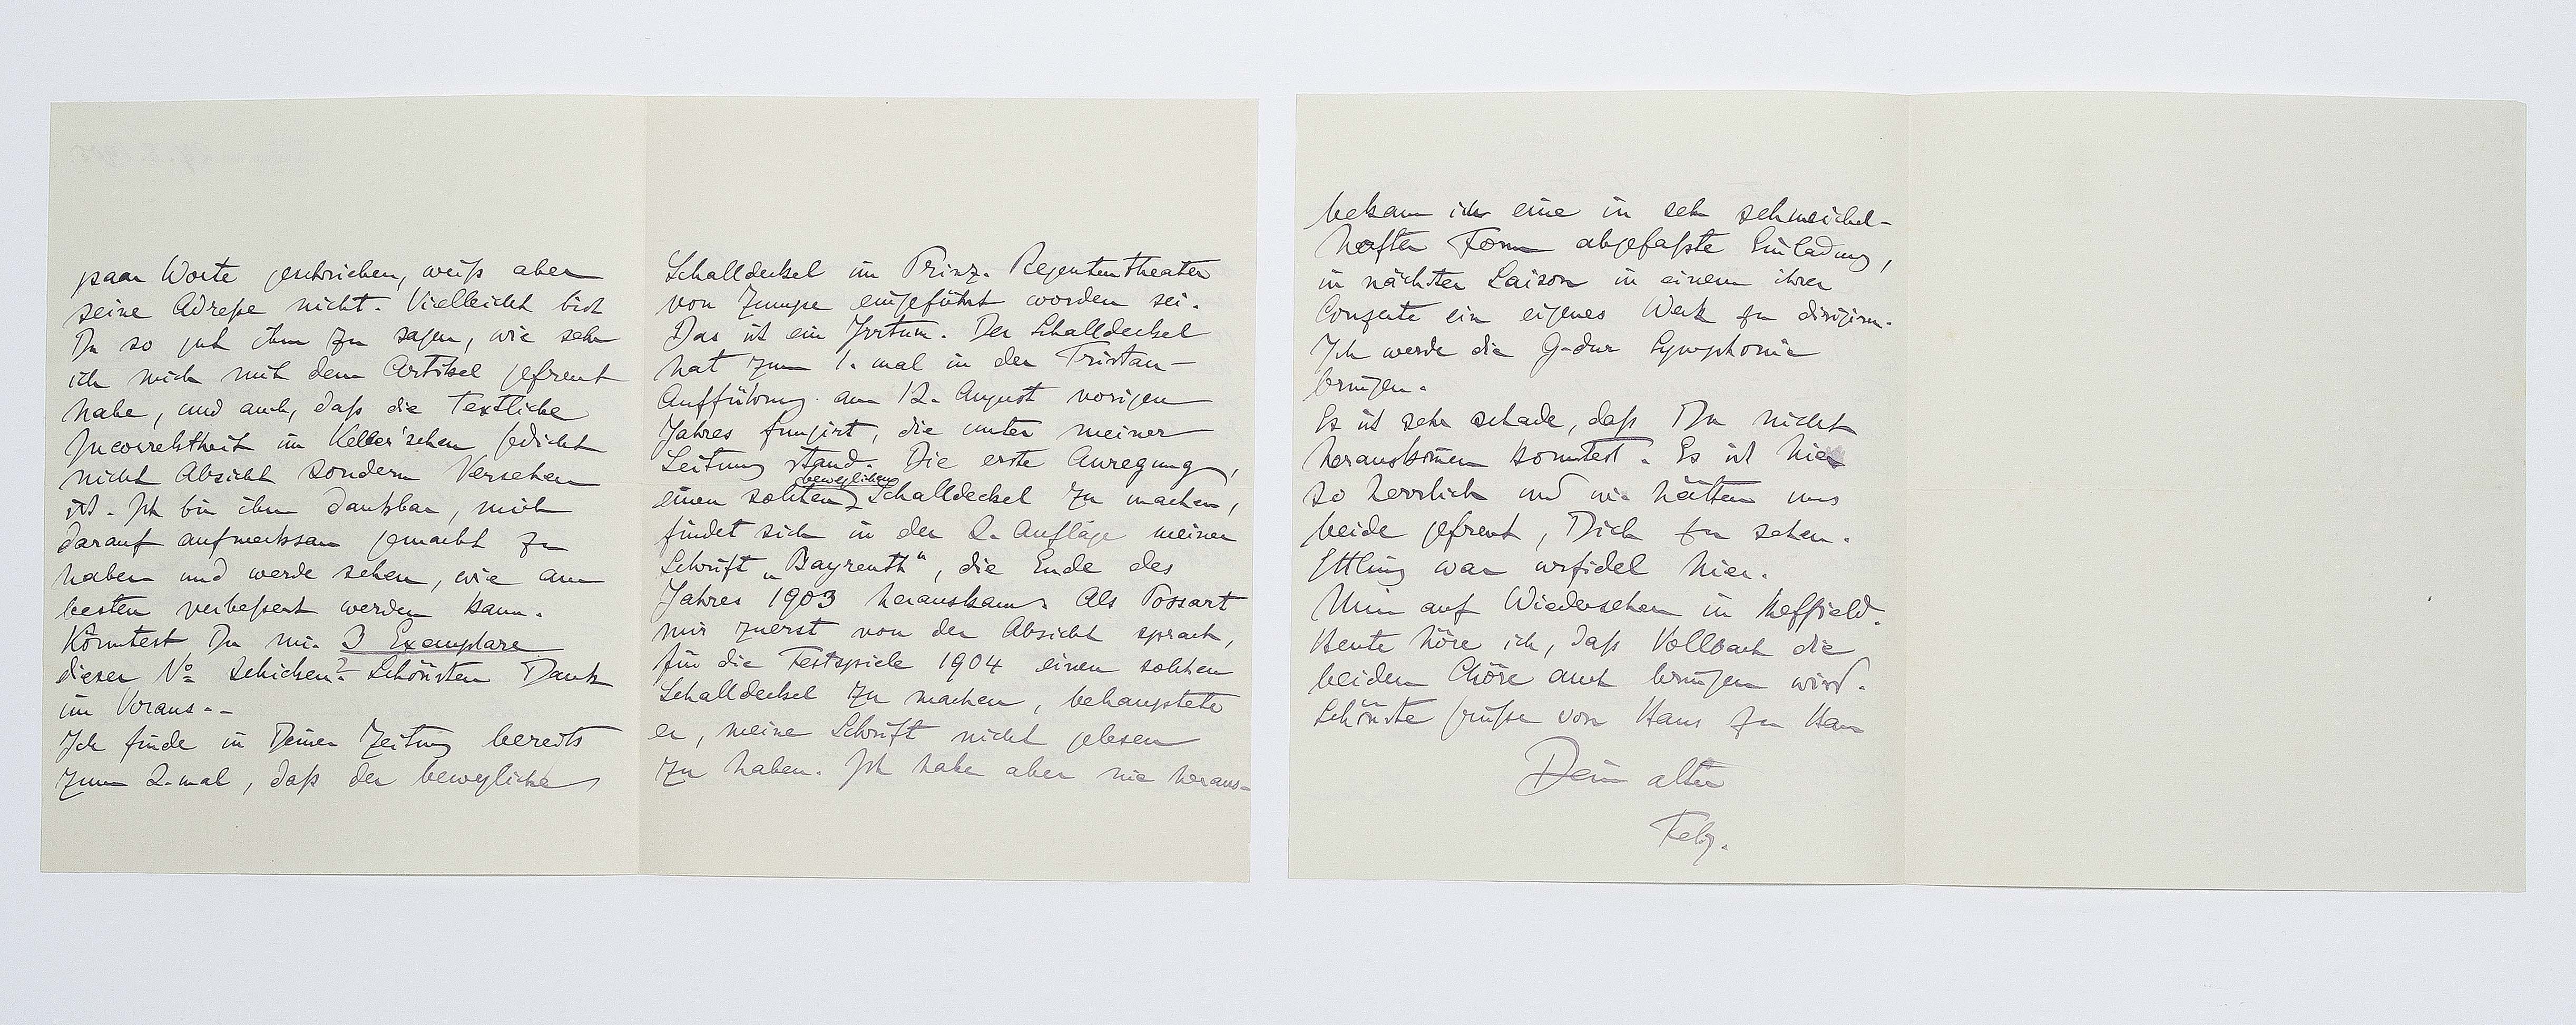 paar Worte geschrieben, weiß aber
seine Adreße nicht. Vielleicht bist
Du so gut ihm zu sagen, wie sehr
ich mich mit dem Artikel gefreut
habe, und auch, daß die Textliche
Incorrektheit im Keller'schen Gedicht
nicht Absicht sondern Versehen
ist. Ich bin ihm dankbar, mich
darauf aufmerksam gemacht zu
haben und werde sehen, wie am
besten verbeßert werden kann.
Könntest Du mir 3 Exemplare
dieser No schicken? Schönsten Dank
im Voraus.-
Ich finde in Deiner Zeitung bereits
zum 2. mal, daß der bewegliche
Schalldeckel im Prinz-Regententheater
von Zumpe eingeführt worden sei.
Das ist ein Irrtum. Der Schalldeckel
hat zum 1. mal in der Tristan-
Aufführung am 12. August vorigen
Jahres fungirt, die unter meiner
Leitung stand. Die erste Anregung,
einen solchen beweglichen Schalldeckel zu machen,
findet sich in der 2. Auflage meiner
Schrift „Bayreuth“, die Ende des
Jahres 1903 herauskam. Als Possart
mir zuerst von der Absicht sprach,
für die Festspiele 1904 einen solchen
Schalldeckel zu machen, behauptete
er, meine Schrift nicht gelesen
zu haben. Ich habe aber nie heraus-
bekam ich eine in sehr schmeichel-
hafter Form abgefaßte Einladung,
in nächster Saison in einem ihrer
Conzerte ein eigenes Werk zu dirigiren.
Ich werde die G-dur Symphonie
bringen.
Es ist sehr schade, daß Du nicht
herauskommen konntest. Es ist hier
so herrlich und wir hätten uns
beide gefreut, Dich zu sehen.
Ettling war urfidel hier.
Nun auf Wiedersehen in Sheffield.
Heute höre ich, daß Vollbach die
beiden Chöre auch bringen wird.
Schönste Grüße von Haus zu Haus
Dein alter
Felix.